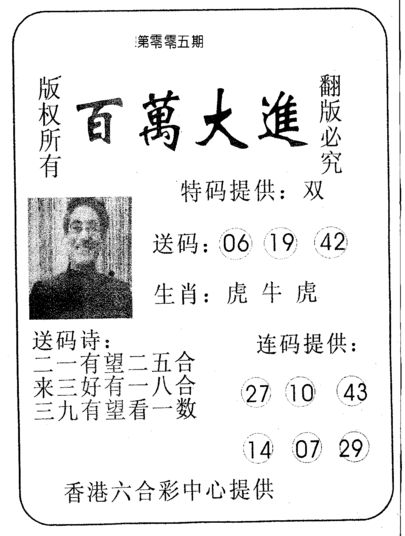 第零零五期
版权所有
百萬大進
翻版必究
特码提供：双
送码：06 19 42
生肖：虎 牛 虎
送码诗：
二一有望二五合
来三好有一八合
三九有望看一数
连码提供：
27 10 43
14 07 29
香港六合彩中心提供